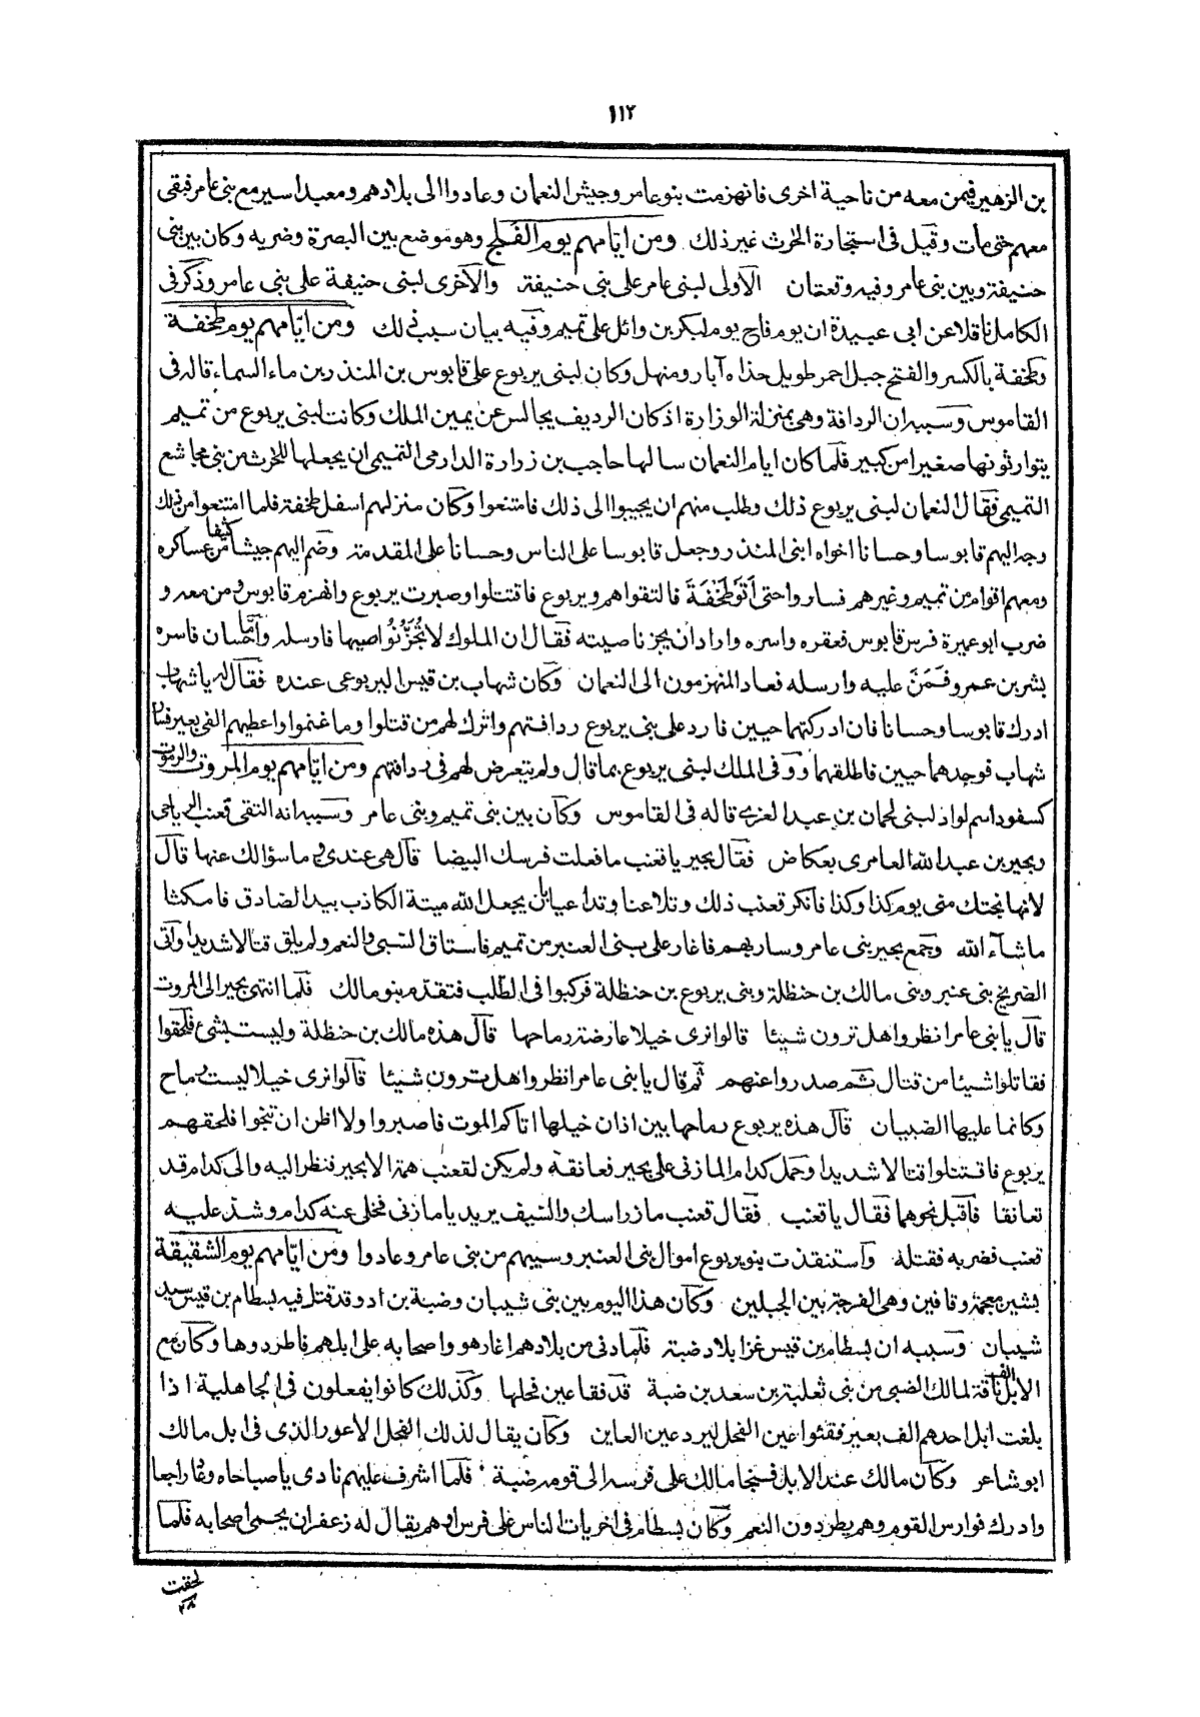 ١١٢
بن الزهير فيمن معه من ناحية اخرى فانهزمت بنو عامر وجيش النعمان وعادوا الى بلادهم ومعبد اسير مع بنى عامر فبقى
معهم حتى مات وقيل فى استجارة الحرث غير ذلك ومن ايّامهم يوم الفلج وهو موضع بين البصرة وضريه وكان بين بنى
حنيفة وبين بنى عامر وفيه وقعتان الاولى لبنى عامر على بنى حنيفة والاخرى لبنى حنيفة على بنى عامر وذكر فى
الكامل ناقلا عن ابى عبيدة ان يوم فلج يوم لبكر بن وائل على تميم وفيه بيان سبب ذلك ومن ايّامهم يوم طخفة
وطخفة بالكسر والفتح جبل احمر طويل حذاه آبار ومنهل وكان لبنى يربوع على قابوس بن المنذر بن ماء السماء قاله فى
القاموس وسببه ان الردافة وهى بمنزلة الوزارة اذ كان الرديف يجالس عن يمين الملك وكانت لبنى يربوع من تميم
يتوارثونها صغيرا من كبير فلما كان ايام النعمان سالها حاجب بن زرارة الدارمى التميمى ان يجعلها للحرث من بنى مجاشع
التميمى فقال النعمان لبنى يربوع ذلك وطلب منهم ان يجيبوا الى ذلك فامتنعوا وكان منزلهم اسفل طخفة فلما امتنعوا من ذلك
وجه اليهم قابوسا وحسانا اخواه ابنى المنذر وجعل قابوسا على الناس وحسانا على المقدمة وضم اليهم جيشا كثيفا من عساكره
ومعهم اقوام من تميم وغيرهم فساروا حتى أتَو طَخْفَةَ فالتقوا هم ويربوع فاقتتلوا وصبرت يربوع وانهزم قابوس ومن معه و
ضرب ابو عميرة فرس قابوس فعقره واسره واراد ان يجز ناصيته فقال ان الملوك لا تُجَزُّ نواصيها فارسله وأمّا حسان فاسره
بشر بن عمرو فَمَنَّ عليه وارسله فعاد المنهزمون الى النعمان وكان شهاب بن قيس اليربوعى عنده فقال له يا شهاب
ادرك قابوسا وحسانا فان ادركتهما حيين فارد على بنى يربوع ردافتهم واترك لهم من قتلوا وما غنموا واعطيهم الفى بعير فسار
شهاب فوجدهما حيين فاطلقهما ووفى الملك لبنى يربوع بما قال ولم يتعرض لهم فى ردافتهم ومن ايّامهم يوم المرّوت والمرّوت
كسفود اسم لواد لبنى لحمان بن عبد العزى قاله فى القاموس وكان بين بنى تميم وبنى عامر وسببه انه التقى قعنب الرياحى
وبجير بن عبد الله العامرى بعكاض فقال بجير يا قعنب ما فعلت فرسك البيضا قال هى عندى وما سؤالك عنها قال
لانها نجتك منى يوم كذا وكذا فانكر قعنب ذلك وتلاعنا وتداعيا بان يجعل الله ميتة الكاذب بيد الصادق فامكثا
ما شآء الله وجمع بجير بنى عامر وسار بهم فاغار على بنى العنبر من تميم فاستاق السبى والنعم ولم يلق قتالا شديدا وآتى
الصريخ بنى عنبر وبنى مالك بن حنظلة وبنى يربوع بن حنظلة فركبوا فى الطلب فتقدم بنو مالك فلما انتهى بجير الى المروت
قال يا بنى عامر انظروا هل ترون شيئا قالوا نرى خيلا عارضة رماحها قال هذه مالك بن حنظلة وليست بشئ فلحقوا
فقاتلوا شيئا من قتال ثم صدروا عنهم ثم قال يا بنى عامر انظروا هل ترون شيئا قالوا نرى خيلا ليست رماح
وكانما عليها الصبيان قال هذه يربوع رماحها بين اذان خيلها اتاكم الموت فاصبروا ولا اظن ان تنجوا فلحقهم
يربوع فاقتتلوا قتالا شديدا وحمل كدام المازنى على بجير فعانقه ولم يكن لقعنب همة الا بجير فنظر اليه والى كدام قد
تعانقا فاقبل نحوهما فقال يا قعنب فقال قعنب ماز راسك والسيف يريد يا مازنى فخلى عنه كدام وشد عليه
قعنب فضربه فقتله واستنقذت بنو يربوع اموال بنى العنبر وسبيهم من بنى عامر وعادوا ومن ايّامهم يوم الشقيقة
بشين معجمة وقافين وهى الفرجة بين الجبلين وكان هذا اليوم بين بنى شيبان وضبة بن اد وقد قتل فيه بسطام بن قيس سيد
شيبان وسببه ان بسطام بن قيس غزا بلاد ضبة فلما دنى من بلادهم اغار هو واصحابه على ابلهم فاطردوها وكان مع
الابل الف ناقة لمالك الضبى من بنى ثعلبة بن سعد بن ضبة قد فقا عين فحلها وكذلك كانوا يفعلون فى الجاهلية اذا
بلغت ابل احدهم الف بعير فقئوا عين الفحل ليرد عين العاين وكان يقال لذلك الفحل الاعور الذى فى ابل مالك
ابو شاعر وكان مالك عند الابل فنجا مالك على فرسه الى قومه ضبة فلما اشرف عليهم نادى يا صباحاه وعاد راجعا
وادرك فوارس القوم وهم يطردون النعم وكان بسطام فى اخريات الناس على فرس ادهم يقال له زعفران يحمى اصحابه فلما
لحقت
٢٨